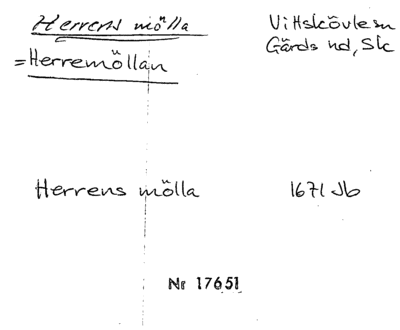 Herrens mölla
=Herremöllan
Vittskövle sn
Gärds hd, Sk
Herrens mölla
1671 Jb
Nr 17651